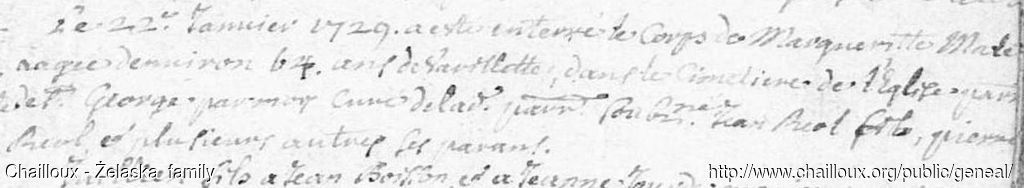 Le 22e. Janvier 1729. a este enterré le Corps de Margueritte Male
aagee denviron 64. ans de Vavillette, dans le Cimetiere de l'Eglise parr
de St. George par moy Curé delad. parr. soubné. Jean Reol fils, pierre
Reol, et plusieurs autres ses parans.
fils a Jean et a Jeanne
Chailloux - Żelaska family
http://www.chailloux.org/public/geneal/